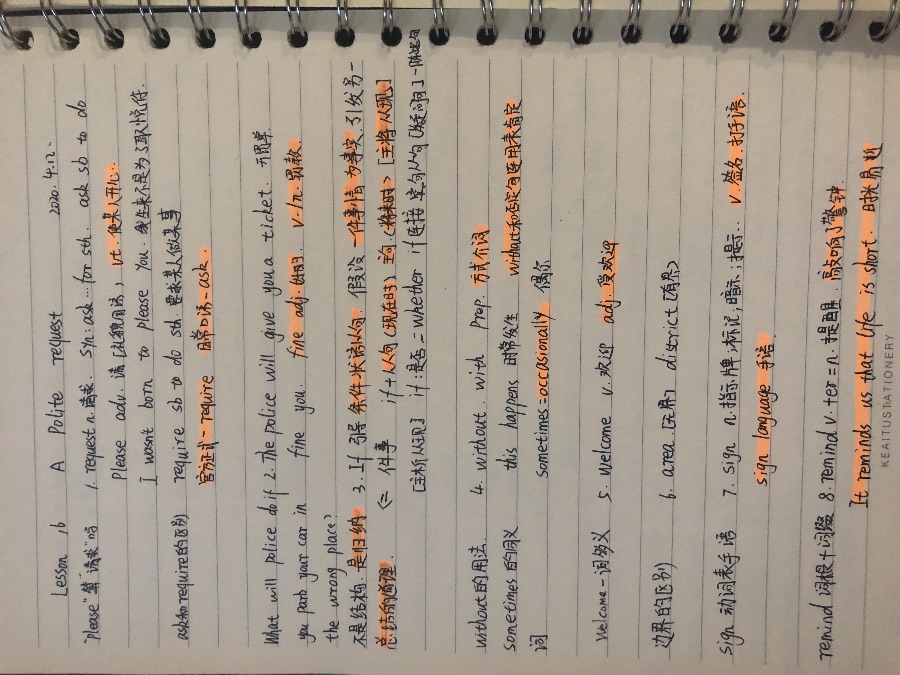 Lesson 16 A Polite request 2020.4.12-
"please"算"请求"吗 1. request n.请求. syn: ask...for sth. ask sb to do
please adv. 请 [礼貌用语] vt. 使某人开心.
I wasnt born to please you. 我生来不是为了取悦你.
ask和require的区别 require sb to do sth. 要求某人做某事
官方正式-require 日常口语-ask.
What will police do if 2. The police will give you a ticket. 开罚单
you park your car in fine you. fine adj.好的 v./n.罚款
the wrong place?
不是结构.是归纳 3. If 引导 条件状语从句. 假设一件事情为事实,引发另一
总结的道理. 件事 if+从句(现在时), 主句(将来时) [主将从现]
[主将从现] if 是否=whether if连接 宾从句[疑问句]-陈述句
without的用法. 4. without. with prep. 方式介词
sometimes的同义 this happens 时常发生 without和否定句连用来肯定
词 sometimes=occasionally 偶尔
welcome一词多义 5. welcome v.欢迎 adj.受欢迎
边界的区别 6. area [无界] district [有界]
sign 动词表手语 7. sign n.指示牌;标记;暗示;提示. v.签名.打手语.
sign language 手语
remind 词根+词缀 8. remind v.+er=n.提醒.敲响了警钟.
It reminds us that life is short. 时光易逝
KEAITUSTATIONERY